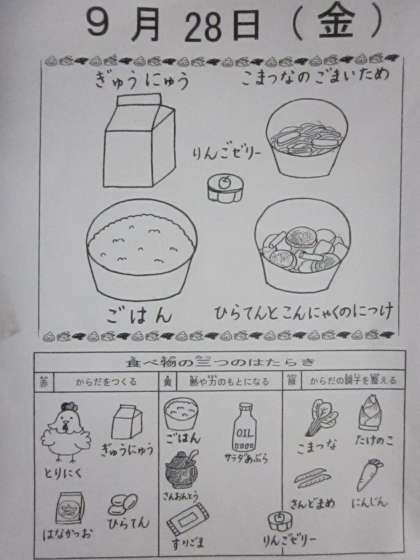 9月28日(金)
ぎゅうにゅう
こまつなのごまいため
りんごゼリー
ごはん
ひらてんとこんにゃくのにつけ
食べ物の三つのはたらき
赤 からだをつくる
黄 熱や力のもとになる
緑 からだの調子を整える
とりにく
ぎゅうにゅう
はなかつお
ひらてん
ごはん
サラダあぶら
さんおんとう
すりごま
りんごゼリー
こまつな
たけのこ
さんどまめ
にんじん
OIL